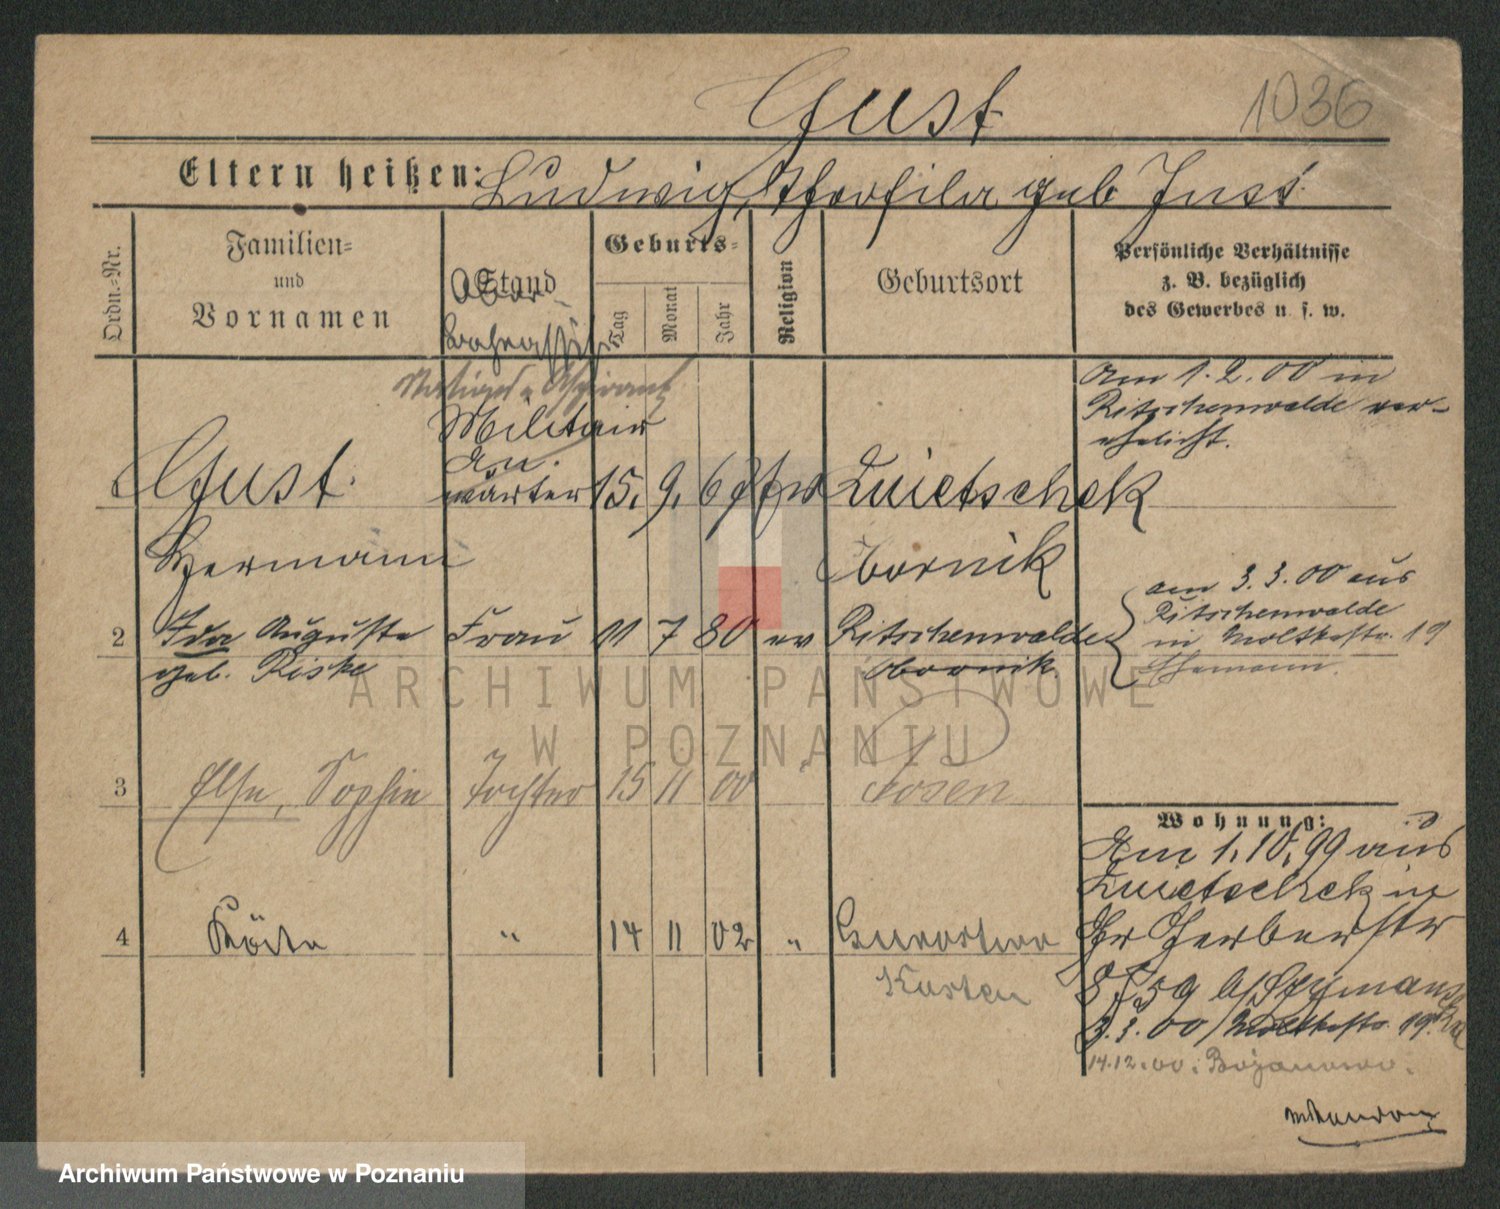 Gust
1036
Eltern heißen: Ludwig, geb Just
Ordn.-Nr.
Familien-
und
Vornamen
Stand
Geburts-
Tag
Monat
Jahr
Religion
Geburtsort
Persönliche Verhältnisse
z. B. bezüglich
des Gewerbes u. s. w.
Am 1.2.00 in
Ritschenwalde ver-
ehelicht.
Militair
an.
wärter
1 Gust. 15. 9. Zuietschek
Hermann Obornik
2 Ida Auguste Frau 11 7 80 ev Ritschenwalde
geb. Riske Obornik
am 3.3.00 aus
Ritschenwalde
in Moltkestr. 19
Ehemann.
3 Else, Sophie Tochter 15 11 00 " Posen
4 " 14 11 02 "
Kosten
Wohnung:
Am 1.10.99 aus
Zuietschek in
Gr Gerberstr
3.3.00 Moltkestr. 19
14.12.00: Bojanowo.
ARCHIWUM PAŃSTWOWE
W POZNANIU
Archiwum Państwowe w Poznaniu